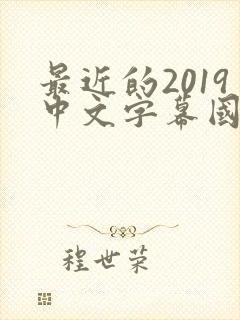 最近的2019
中文字幕國
程世荣